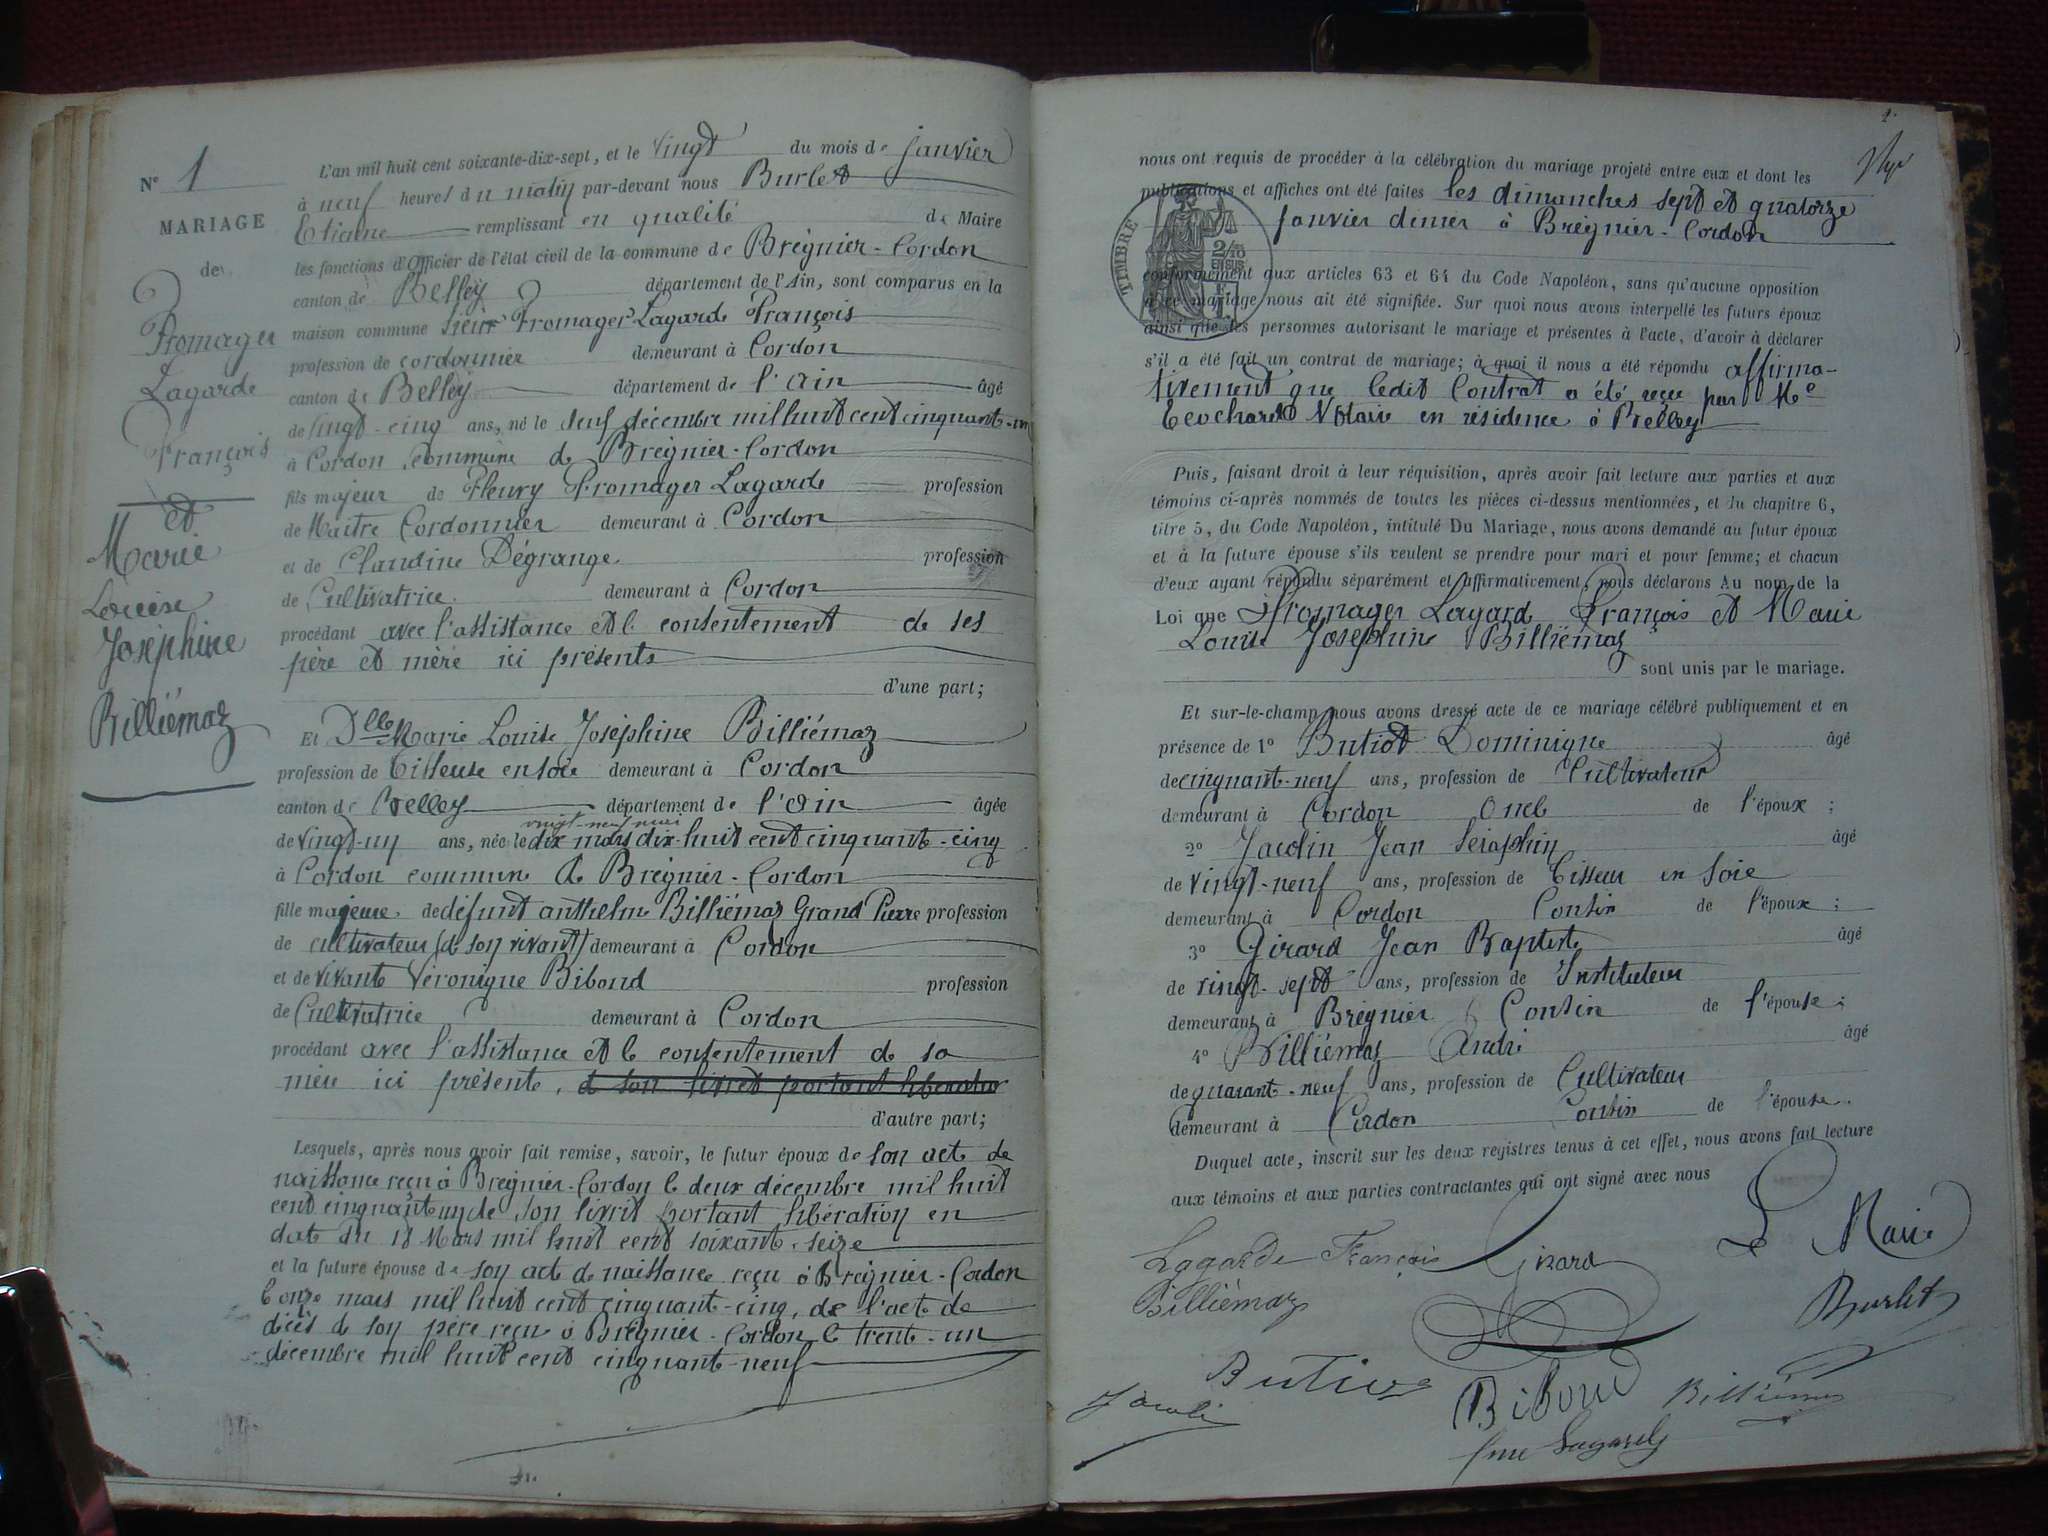 N° 1
MARIAGE
de
Fromager
Lagarde
François
et
Marie
Louise
Joséphine
Billiémaz
L'an mil huit cent soixante-dix-sept, et le vingt du mois de janvier
à neuf heures du matin par-devant nous Burlet
Etienne remplissant en qualité de Maire
les fonctions d'Officier de l'état civil de la commune de Brégnier-Cordon
canton de Belley département de l'Ain, sont comparus en la
maison commune sieur Fromager Lagarde François
profession de cordonnier demeurant à Cordon
canton de Belley département de l'ain âgé
de vingt-cinq ans, né le deux décembre mil huit cent cinquant-un
à Cordon commune de Brégnier-Cordon
fils majeur de Fleury Fromager Lagarde profession
de Maitre Cordonnier demeurant à Cordon
et de Claudine Dégrange profession
de Cultivatrice demeurant à Cordon
procédant avec l'assistance et le consentement de ses
père et mère ici présents
d'une part;
Et Dlle Marie Louise Joséphine Billiémaz
profession de Tisseuse en soie demeurant à Cordon
canton de Belley département de l'ain âgée
de vingt-un ans, née le dix mars dix-huit cent cinquante-cinq
à Cordon commune de Brégnier-Cordon
fille majeure de défunt anthelme Billiémaz Grand Pierre profession
de cultivateur (de son vivant) demeurant à Cordon
et de vivante Véronique Bibond profession
de Cultivatrice demeurant à Cordon
procédant avec l'assistance et le consentement de sa
mère ici présente, et son livret portant libération
d'autre part;
Lesquels, après nous avoir fait remise, savoir, le futur époux de son acte de
naissance reçu à Brégnier-Cordon le deux décembre mil huit
cent cinquant un de son livrit portant libération en
date du 18 Mars mil huit cent soixant-seize
et la future épouse de son acte de naissance reçu à Brégnier-Cordon
le onze mars mil huit cent cinquant-cinq, de l'acte de
décès de son père reçu à Brégnier-Cordon le trente-un
décembre mil huit cent cinquant-neuf
1.
nous ont requis de procéder à la célébration du mariage projeté entre eux et dont les
publications et affiches ont été faites les dimanches sept et quatorze
janvier dernier à Brégnier-Cordon
TIMBRE
2/10
EN SUS
conformément aux articles 63 et 64 du Code Napoléon, sans qu'aucune opposition
à ce mariage nous ait été signifiée. Sur quoi nous avons interpellé les futurs époux
ainsi que les personnes autorisant le mariage et présentes à l'acte, d'avoir à déclarer
s'il a été fait un contrat de mariage; à quoi il nous a été répondu affirma-
tivement que ledit Contrat a été reçu par Me
Notaire en résidence à Belley
Puis, faisant droit à leur réquisition, après avoir fait lecture aux parties et aux
témoins ci-après nommés de toutes les pièces ci-dessus mentionnées, et du chapitre 6,
titre 5, du Code Napoléon, intitulé Du Mariage, nous avons demandé au futur époux
et à la future épouse s'ils veulent se prendre pour mari et pour femme; et chacun
d'eux ayant répondu séparément et affirmativement, nous déclarons Au nom de la
Loi que Fromager Lagard François et Marie
Louise Joséphine Billiémaz
sont unis par le mariage.
Et sur-le-champ nous avons dressé acte de ce mariage célébré publiquement et en
présence de 1° Butiot Dominique âgé
de cinquant-neuf ans, profession de Cultivateur
demeurant à Cordon Oncle de l'époux;
2° Jacolin Jean Séraphin âgé
de vingt-neuf ans, profession de Tisseur en soie
demeurant à Cordon Consin de l'époux;
3° Girard Jean Baptiste âgé
de vingt-sept ans, profession de Instituteur
demeurant à Brégnier Consin de l'épouse;
4° Billiémaz André âgé
de quarant-neuf ans, profession de Cultivateur
demeurant à Cordon Consin de l'épouse.
Duquel acte, inscrit sur les deux registres tenus à cet effet, nous avons fait lecture
aux témoins et aux parties contractantes qui ont signé avec nous
Lagarde François Girard Le Maire
Billiémaz Burlet
Butiot Bibond Billiémaz
Jacolin